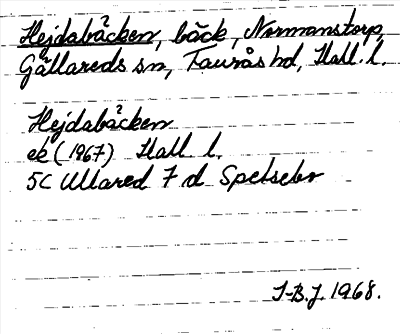 Hejdabäcken, bäck, Normanstorp,
Gällareds sn, Faurås hd, Hall. l.
Hejdabäcken
ek (1967) Hall l.
5C Ullared 7 d
I-B.J. 1968.